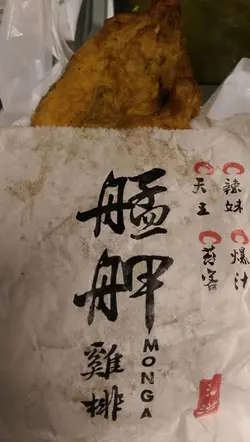 艋舺
雞排
MONGA
辣妹
天王
爆汁